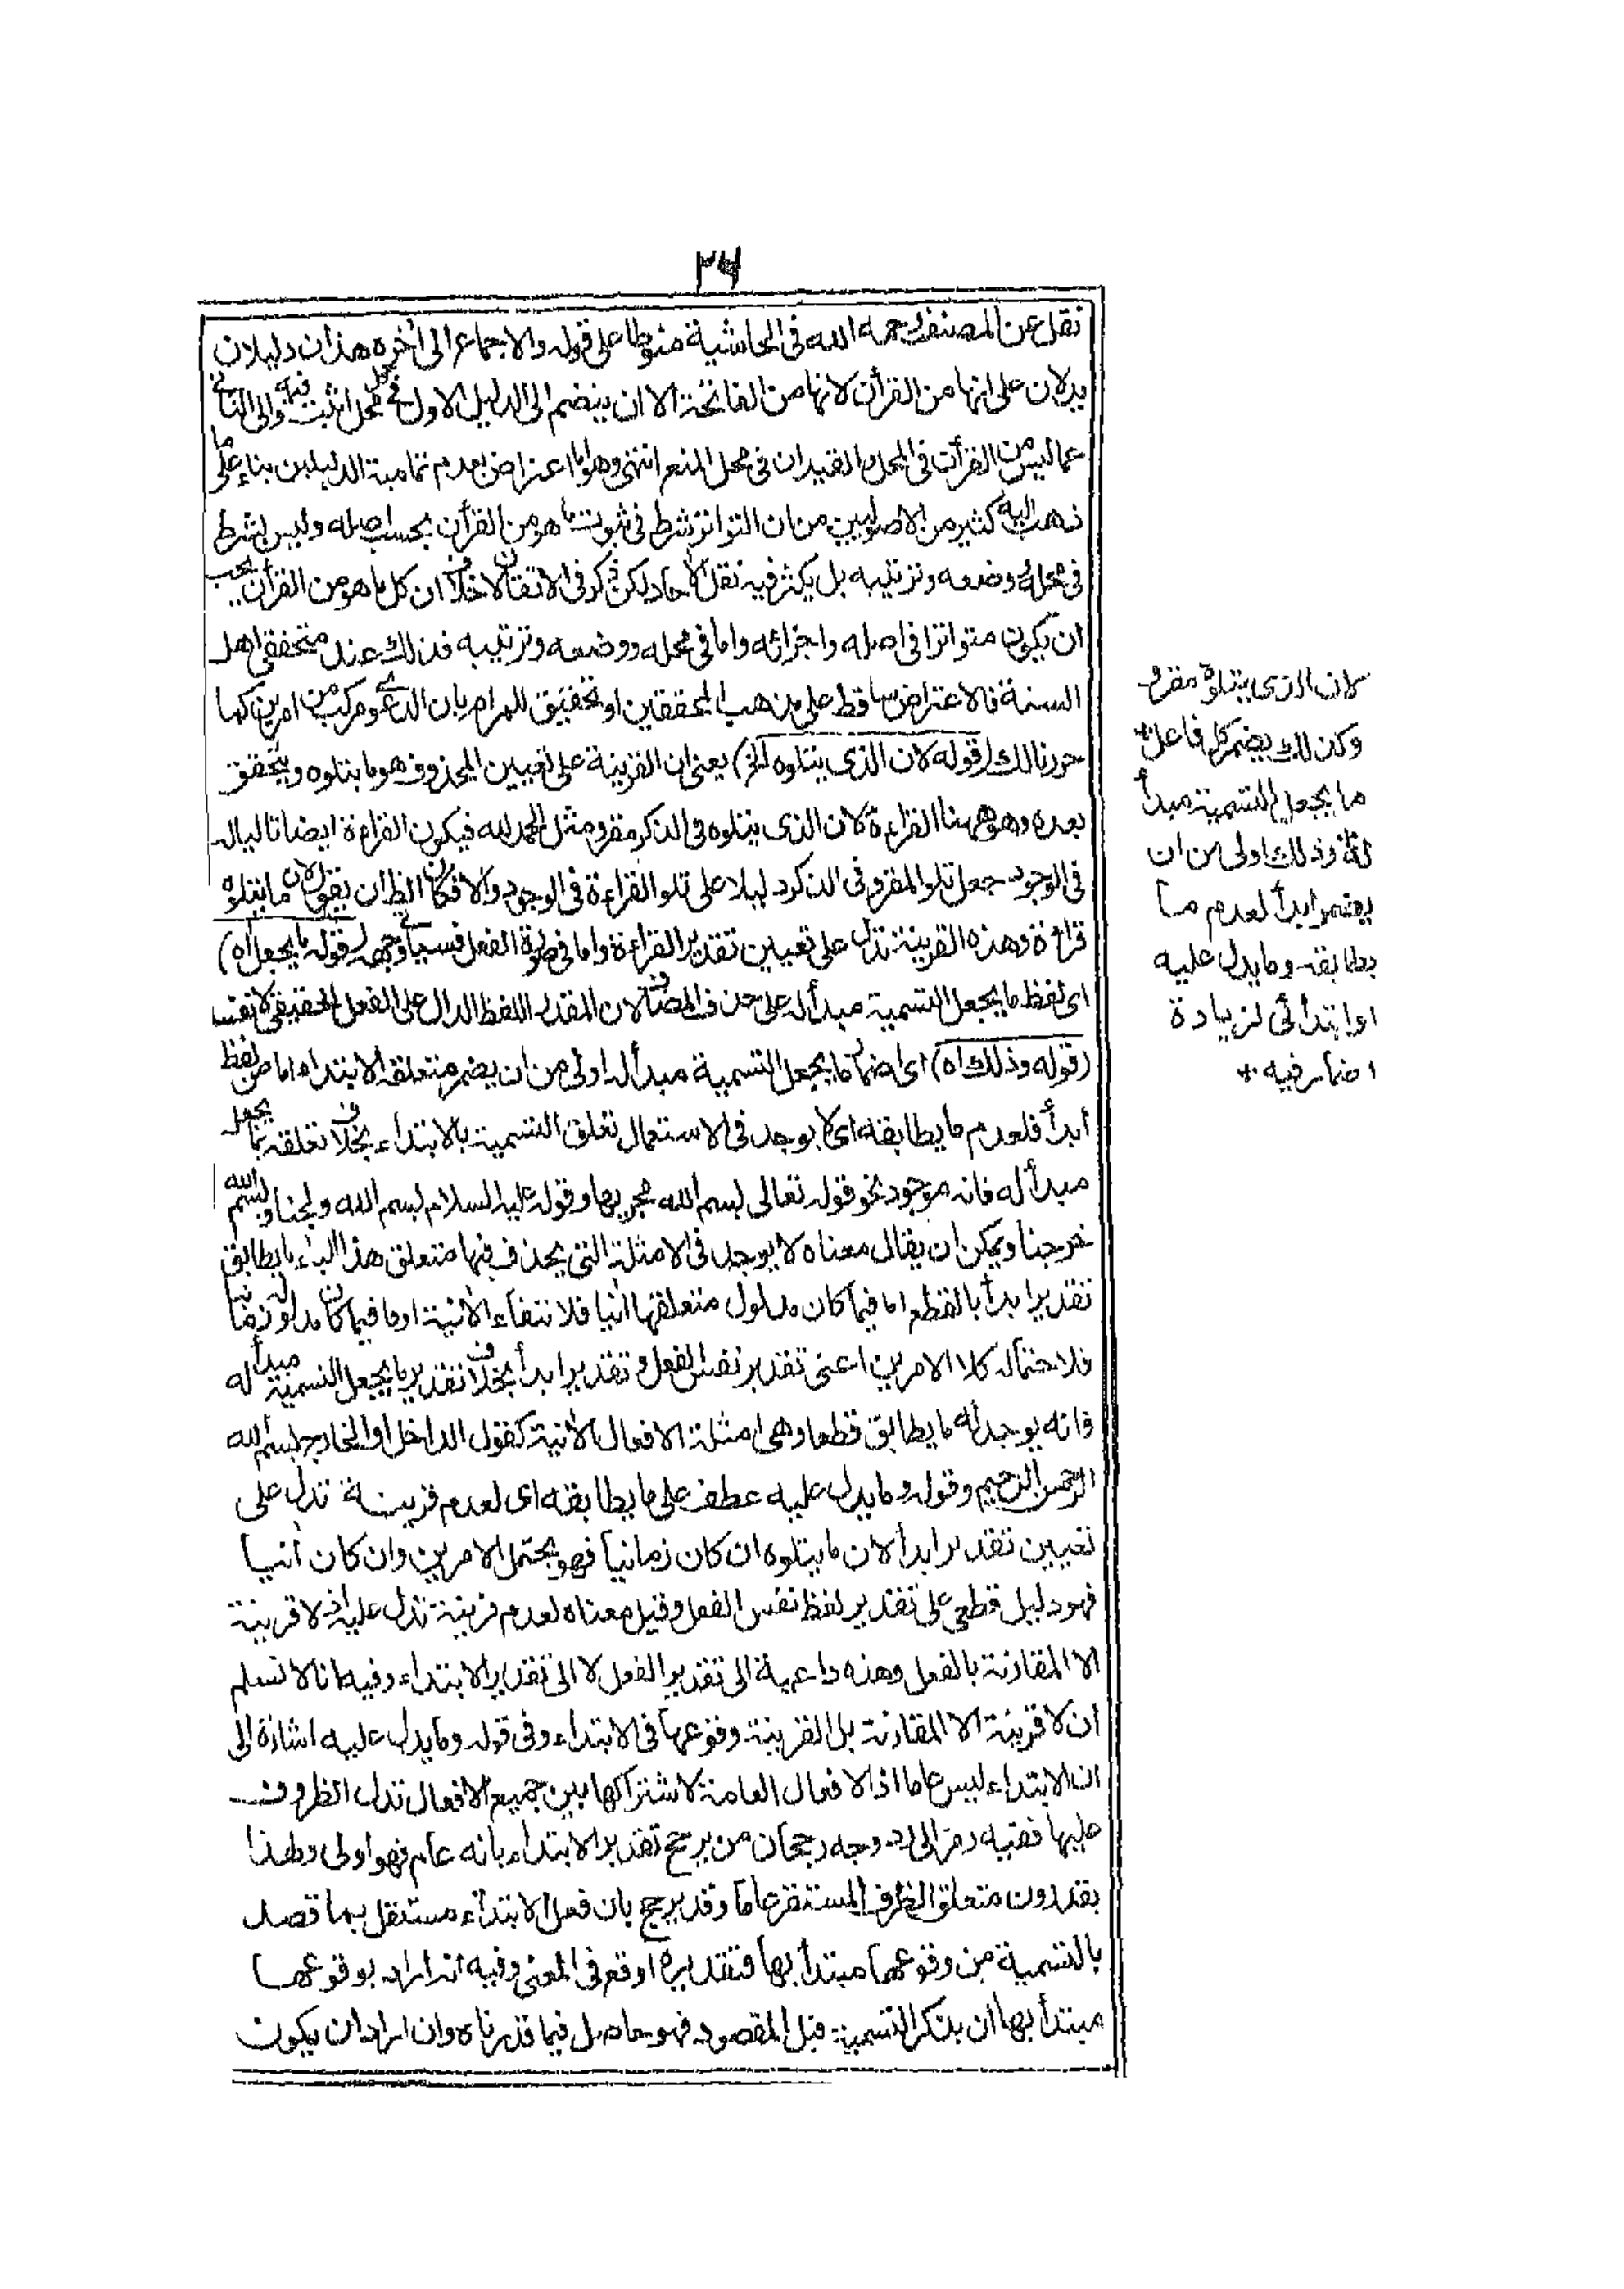 ٢٤
نقل عن المصنف رحمه الله في الحاشية منوطا على قوله والاجماع الى اخره هذان دليلان
يدلان على انها من القرآن لا انها من الفاتحة الا ان ينضم الى الدليل الاول في محل اثبت فيه والى الثاني
عما ليس من القرآن في المحل والقيدان في محل المنع انتهى وهو اما اعتراض بعدم تمامية الدليلين بناء على ما
ذهب اليه كثير من الاصوليين من ان التواتر شرط في ثبوت ما هو من القرآن بحسب اصله وليس بشرط
في محله ووضعه وترتيبه بل يكثر فيه نقل الآحاد لكن ذكر في الاتقان لا خلاف ان كل ما هو من القرآن يجب
ان يكون متواترا في اصله واجزائه واما في محله ووضعه وترتيبه فذلك عند محققي اهل
السنة فالاعتراض ساقط على مذهب المحققين او تحقيق للمرام بان الدعوى مركب من امرين كما
حررنا لك (قوله لان الذي يتلوه الخ) يعني ان القرينة على تعيين المحذوف هو ما يتلوه ويتحقق
بعده وهو ههنا القراءة لان الذي يتلوه في الذكر مقرو مثل الحمد لله فيكون القراءة ايضا تاليا له
في الوجود جعل تلو المقرو في الذكر دليلا على تلو القراءة في الوجود والا فكان الظ ان يقول لان ما يتلوه
قراءة وهذه القرينة تدل على تعيين تقدير القراءة واما في صورة الفعل فسيأتي وجهه (قوله ما يجعل اه)
اي لفظ ما يجعل التسمية مبدأ له على حذف المضاف لان المقدر اللفظ الدال على الفعل الحقيقي لا نفسه
(قوله وذلك اه) اي اضمار ما يجعل التسمية مبدأ له اولى من ان يضمر متعلقه الابتداء اما من لفظ
ابدأ فلعدم ما يطابقه اي لا يوجد في الاستعمال تعلق التسمية بالابتداء بخلاف تعلقه بما يجعل
مبدأ له فانه موجود نحو قوله تعالى بسم الله مجريها وقوله عليه السلام بسم الله ولجنا وبسم الله
خرجنا ويمكن ان يقال معناه لا يوجد في الامثلة التي يحذف فيها متعلق هذا الباء ما يطابق
تقدير ابدأ بالقطع اما فيما كان مدلول متعلقها آنيا فلانتفاء الآنية اوما فيما كان مدلوله زمانيا
فلاحتماله كلا الامرين اعني تقدير نفس الفعل وتقدير ابدأ بخلاف تقدير ما يجعل التسمية مبدأ له
فانه يوجد له ما يطابق قطعا وهي امثلة الافعال الآنية كقول الداخل او الخارج بسم الله
الرحمن الرحيم وقوله وما يدل عليه عطف على ما يطابقه اي لعدم قرينة تدل على
تعيين تقدير ابدأ لان ما يتلوه ان كان زمانيا فهو يحتمل الامرين وان كان آنيا
فهو دليل قطعي على تقدير لفظ نفس الفعل وقيل معناه لعدم قرينة تدل عليه اذ لا قرينة
الا المقارنة بالفعل وهذه داعية الى تقدير الفعل لا الى تقدير الابتداء وفيه انا لا نسلم
ان لا قرينة الا المقارنة بل القرينة وقوعها في الابتداء وفي قوله وما يدل عليه اشارة الى
ان الابتداء ليس عاما اذ الافعال العامة لاشتراكها بين جميع الافعال تدل الظروف
عليها ففيه رمز الى رد وجه رجحان من يرجح تقدير الابتداء بانه عام فهو اولى ولهذا
يقدرون متعلق الظرف المستقر عاما وقد يرجح بان فعل الابتداء مستقل بما قصد
بالتسمية من وقوعها مبتدأ بها فتقديره اوقع في المعنى وفيه انه اراد بوقوعها
مبتدأ بها ان يذكر التسمية قبل المقصود فهو حاصل فيما قدرناه وان اراد ان يكون
لان الذي يتلوه مقرو
وكذلك يضمر كل فاعل
ما يجعل التسمية مبدأ
له وذلك اولى من ان
يضمر ابدأ لعدم ما
يطابقه وما يدل عليه
او ابتدائي لزيادة
اضمار فيه